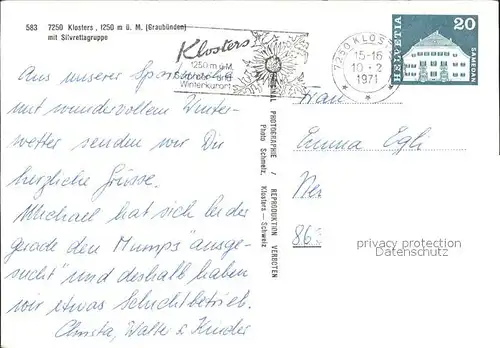 583 7250 Klosters, 1250 m ü. M. (Graubünden)
mit Silvrettagruppe
Klosters
1250 m ü.M.
Winterkurort
7250 KLOSTERS
15-16
10-2
1971
HELVETIA
20
SAMEDAN
Aus unserer
mit wundervollem Winter-
wetter senden wir Dir
herzliche Grüsse.
Michael hat sich leider
gerade den Mumps "ausge-
sucht" und deshalb haben
wir etwas Schichtbetrieb.
Christa, Walter & Kinder
PHOTOGRAPHIE / REPRODUKTION VERBOTEN
Photo Schmelz, Klosters — Schweiz
Frau
Emma Egli
privacy protection
Datenschutz